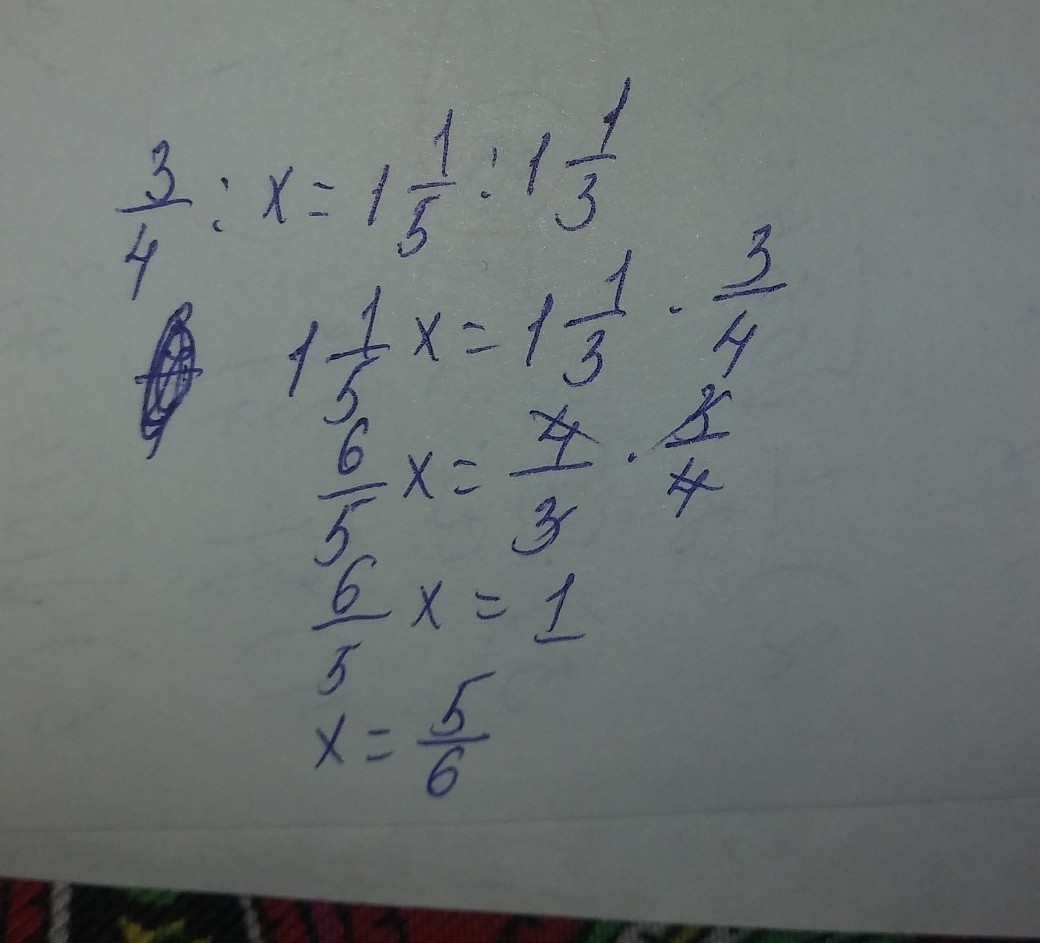 3/4 : x = 1 1/5 : 1 1/3
1 1/5 x = 1 1/3 · 3/4
6/5 x = 4/3 · 3/4
6/5 x = 1
x = 5/6